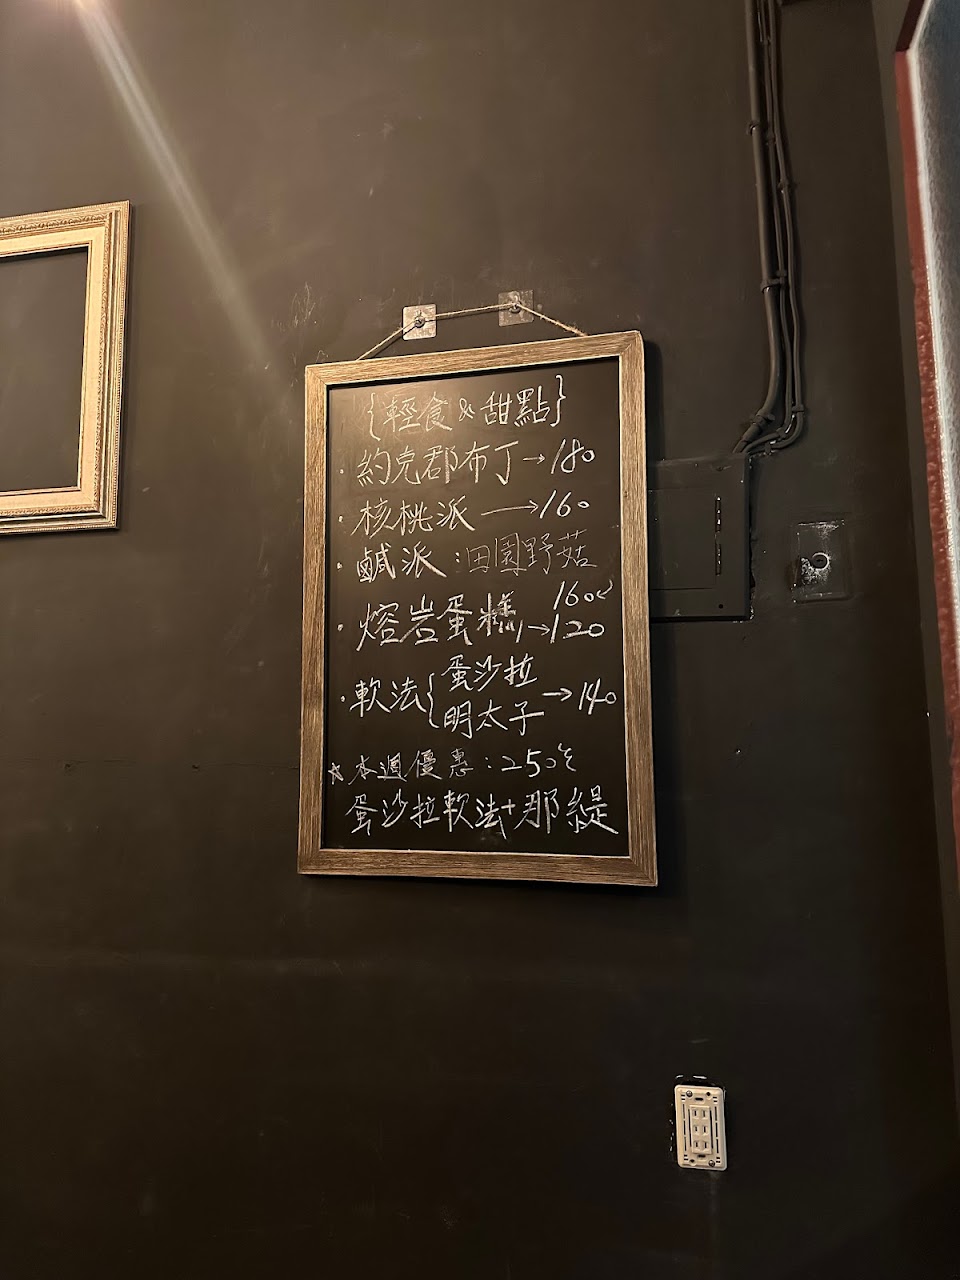 {輕食 & 甜點}
· 約克郡布丁→180
· 核桃派 →160
· 鹹派:田園野菇
160
· 熔岩蛋糕→120
· 軟法{蛋沙拉 明太子→140
☆本週優惠:250元
蛋沙拉軟法+那緹